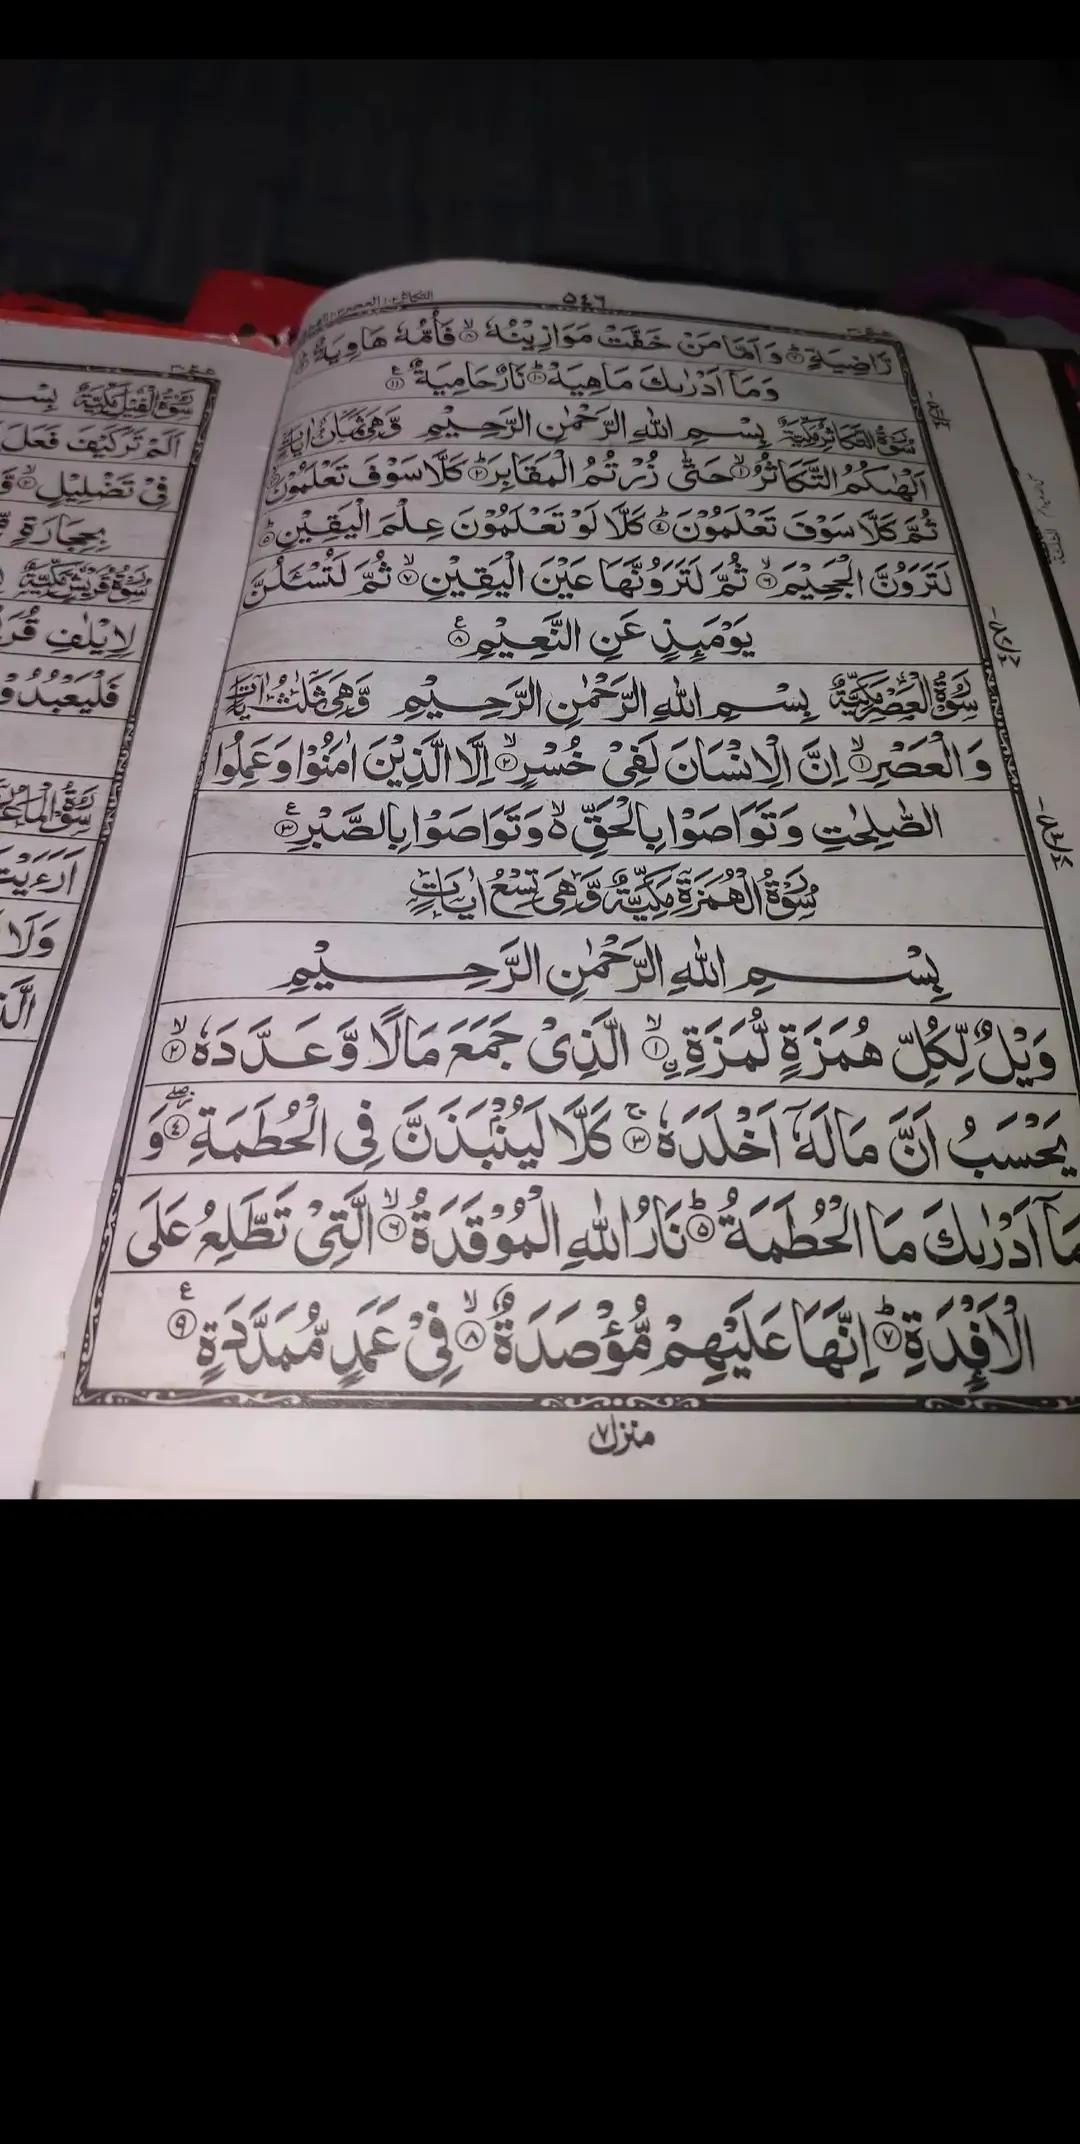 ٥٤٦
رَّاضِيَةٍ ۝٧ وَاَمَّا مَنْ خَفَّتْ مَوَازِيْنُهٗ ۝٨ فَاُمُّهٗ هَاوِيَةٌ ۝٩
وَمَاۤ اَدْرٰىكَ مَاهِيَهْ ۝١٠ نَارٌ حَامِيَةٌ ۝١١
سُوْرَةُ التَّكَاثُرِ مَكِّيَّةٌ بِسْمِ اللّٰهِ الرَّحْمٰنِ الرَّحِيْمِ وَّهِيَ ثَمَانُ اٰيَاتٍ
اَلْهٰىكُمُ التَّكَاثُرُ ۝١ حَتّٰى زُرْتُمُ الْمَقَابِرَ ۝٢ كَلَّا سَوْفَ تَعْلَمُوْنَ ۝٣
ثُمَّ كَلَّا سَوْفَ تَعْلَمُوْنَ ۝٤ كَلَّا لَوْ تَعْلَمُوْنَ عِلْمَ الْيَقِيْنِ ۝٥
لَتَرَوُنَّ الْجَحِيْمَ ۝٦ ثُمَّ لَتَرَوُنَّهَا عَيْنَ الْيَقِيْنِ ۝٧ ثُمَّ لَتُسْـَٔلُنَّ
يَوْمَىِٕذٍ عَنِ النَّعِيْمِ ۝٨
سُوْرَةُ الْعَصْرِ مَكِّيَّةٌ بِسْمِ اللّٰهِ الرَّحْمٰنِ الرَّحِيْمِ وَّهِيَ ثَلٰثُ اٰيَاتٍ
وَالْعَصْرِ ۝١ اِنَّ الْاِنْسَانَ لَفِيْ خُسْرٍ ۝٢ اِلَّا الَّذِيْنَ اٰمَنُوْا وَعَمِلُوا
الصّٰلِحٰتِ وَتَوَاصَوْا بِالْحَقِّ ۙ وَتَوَاصَوْا بِالصَّبْرِ ۝٣
سُوْرَةُ الْهُمَزَةِ مَكِّيَّةٌ وَّهِيَ تِسْعُ اٰيَاتٍ
بِسْمِ اللّٰهِ الرَّحْمٰنِ الرَّحِيْمِ
وَيْلٌ لِّكُلِّ هُمَزَةٍ لُّمَزَةِ ۝١ اِ۟لَّذِيْ جَمَعَ مَالًا وَّعَدَّدَهٗ ۝٢
يَحْسَبُ اَنَّ مَالَهٗۤ اَخْلَدَهٗ ۝٣ كَلَّا لَيُنْۢبَذَنَّ فِي الْحُطَمَةِ ۝٤ وَ
مَاۤ اَدْرٰىكَ مَا الْحُطَمَةُ ۝٥ نَارُ اللّٰهِ الْمُوْقَدَةُ ۝٦ الَّتِيْ تَطَّلِعُ عَلَى
الْاَفْـِٕدَةِ ۝٧ اِنَّهَا عَلَيْهِمْ مُّؤْصَدَةٌ ۝٨ فِيْ عَمَدٍ مُّمَدَّدَةٍ ۝٩
منزل ٧
سُوْرَةُ الْفِيْلِ مَكِّيَّةٌ
اَلَمْ تَرَ كَيْفَ فَعَلَ
فِيْ تَضْلِيْلٍ ۝٢
بِحِجَارَةٍ
سُوْرَةُ قُرَيْشٍ مَكِّيَّةٌ
لِاِيْلٰفِ
فَلْيَعْبُدُوْا
وَلَا